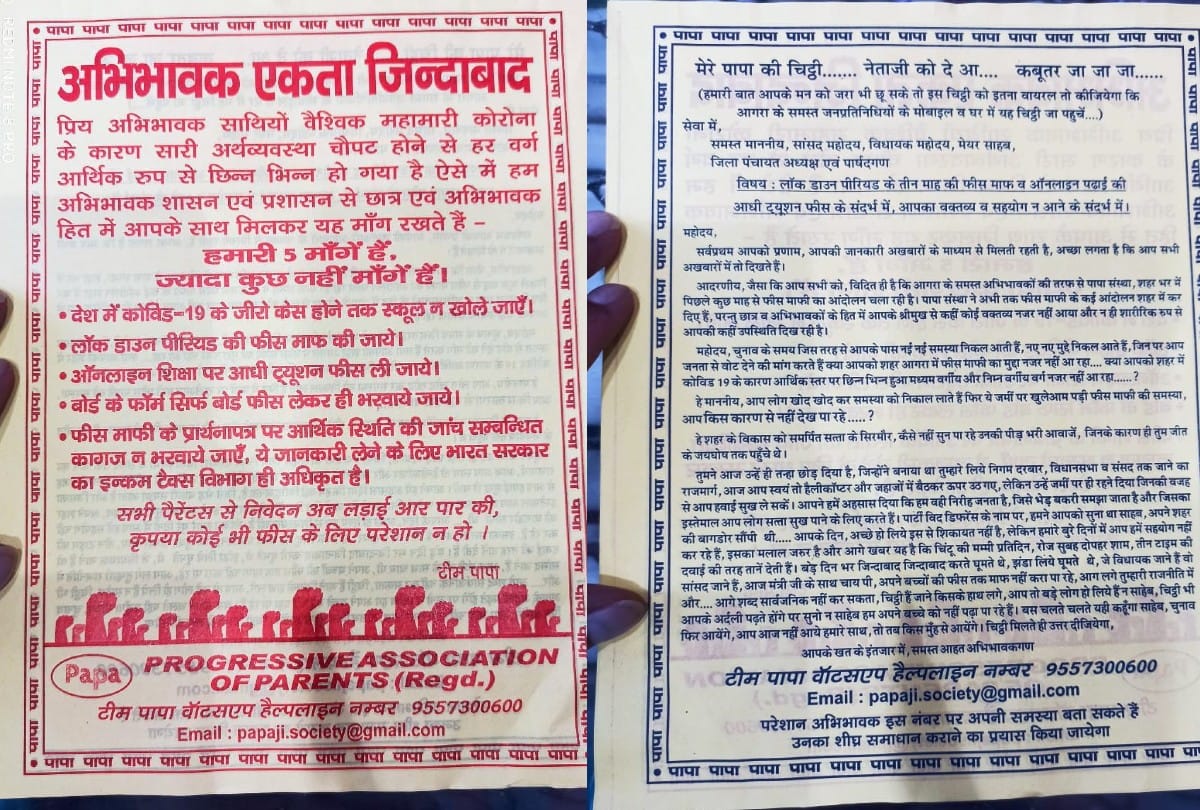 REDMI NOTE 5 PRO
पापा पापा पापा पापा पापा पापा पापा पापा पापा पापा पापा पापा
अभिभावक एकता जिन्दाबाद
प्रिय अभिभावक साथियों वैश्विक महामारी कोरोना
के कारण सारी अर्थव्यवस्था चौपट होने से हर वर्ग
आर्थिक रुप से छिन्न भिन्न हो गया है ऐसे में हम
अभिभावक शासन एवं प्रशासन से छात्र एवं अभिभावक
हित में आपके साथ मिलकर यह माँग रखते हैं –
हमारी 5 माँगें हैं,
ज्यादा कुछ नहीं माँगें हैं।
• देश में कोविड-19 के जीरो केस होने तक स्कूल न खोले जाएँ।
• लॉक डाउन पीरियड की फीस माफ की जाये।
• ऑनलाइन शिक्षा पर आधी ट्यूशन फीस ली जाये।
• बोर्ड के फॉर्म सिर्फ बोर्ड फीस लेकर ही भरवाये जाये।
• फीस माफी के प्रार्थनापत्र पर आर्थिक स्थिति की जांच सम्बन्धित
कागज न भरवाये जाएँ, ये जानकारी लेने के लिए भारत सरकार
का इन्कम टैक्स विभाग ही अधिकृत है।
सभी पैरेंटस से निवेदन अब लड़ाई आर पार की,
कृपया कोई भी फीस के लिए परेशान न हो ।
टीम पापा
Papa
PROGRESSIVE ASSOCIATION
OF PARENTS (Regd.)
टीम पापा वॉटसएप हैल्पलाइन नम्बर 9557300600
Email : papaji.society@gmail.com
पापा पापा पापा पापा पापा पापा पापा पापा पापा पापा पापा पापा
पापा पापा पापा पापा पापा पापा पापा पापा पापा पापा पापा पापा
मेरे पापा की चिट्ठी....... नेताजी को दे आ.... कबूतर जा जा जा......
(हमारी बात आपके मन को जरा भी छू सके तो इस चिट्ठी को इतना वायरल तो कीजियेगा कि
आगरा के समस्त जनप्रतिनिधियों के मोबाइल व घर में यह चिट्ठी जा पहुचें....)
सेवा में,
समस्त माननीय, सांसद महोदय, विधायक महोदय, मेयर साहब,
जिला पंचायत अध्यक्ष एवं पार्षदगण
विषय : लॉक डाउन पीरियड के तीन माह की फीस माफ व ऑनलाइन पढ़ाई की
आधी ट्यूशन फीस के संदर्भ में, आपका वक्तव्य व सहयोग न आने के संदर्भ में।
महोदय,
सर्वप्रथम आपको प्रणाम, आपकी जानकारी अखबारों के माध्यम से मिलती रहती है, अच्छा लगता है कि आप सभी
अखबारों में तो दिखते हैं।
आदरणीय, जैसा कि आप सभी को, विदित ही है कि आगरा के समस्त अभिभावकों की तरफ से पापा संस्था, शहर भर में
पिछले कुछ माह से फीस माफी का आंदोलन चला रही है। पापा संस्था ने अभी तक फीस माफी के कई आंदोलन शहर में कर
दिए हैं, परन्तु छात्र व अभिभावकों के हित में आपके श्रीमुख से कहीं कोई वक्तव्य नजर नहीं आया और न ही शारीरिक रुप से
आपकी कहीं उपस्थिति दिख रही है।
महोदय, चुनाव के समय जिस तरह से आपके पास नई नई समस्या निकल आती हैं, नए नए मुद्दे निकल आते हैं, जिन पर आप
जनता से वोट देने की मांग करते हैं क्या आपको शहर आगरा में फीस माफी का मुद्दा नजर नहीं आ रहा.... क्या आपको शहर में
कोविड 19 के कारण आर्थिक स्तर पर छिन्न भिन्न हुआ मध्यम वर्गीय और निम्न वर्गीय वर्ग नजर नहीं आ रहा......?
हे माननीय, आप लोग खोद खोद कर समस्या को निकाल लाते हैं फिर ये जमीं पर खुलेआम पड़ी फीस माफी की समस्या,
आप किस कारण से नहीं देख पा रहे .....?
हे शहर के विकास को समर्पित सत्ता के सिरमौर, कैसे नहीं सुन पा रहे उनकी पीड़ भरी आवाजें, जिनके कारण ही तुम जीत
के जयघोष तक पहुँचे थे।
तुमने आज उन्हें ही तन्हा छोड़ दिया है, जिन्होंने बनाया था तुम्हारे लिये निगम दरबार, विधानसभा व संसद तक जाने का
राजमार्ग, आज आप स्वयं तो हैलीकॉप्टर और जहाजों में बैठकर ऊपर उठ गए, लेकिन उन्हें जमीं पर ही रहने दिया जिनकी वजह
से आप हवाई सुख ले सकें। आपने हमें अहसास दिया कि हम वही निरीह जनता है, जिसे भेड़ बकरी समझा जाता है और जिसका
इस्तेमाल आप लोग सत्ता सुख पाने के लिए करते हैं। पार्टी विद डिफरेंस के नाम पर, हमने आपको सुना था साहब, अपने शहर
की बागडोर सौंपी थी..... आपके दिन, अच्छे हो लिये इस से शिकायत नहीं है, लेकिन हमारे बुरे दिनों में आप हमें सहयोग नहीं
कर रहे हैं, इसका मलाल जरुर है और आगे खबर यह है कि चिंटू की मम्मी प्रतिदिन, रोज सुबह दोपहर शाम, तीन टाइम की
दवाई की तरह ताने देतीं हैं। बड़े दिन भर जिन्दाबाद जिन्दाबाद करते घूमते थे, झंडा लिये घूमते थे, जे विधायक जाने हैं वो
सांसद जाने हैं, आज मंत्री जी के साथ चाय पी, अपने बच्चों की फीस तक माफ नहीं करा पा रहे, आग लगे तुम्हारी राजनीति में
और.... आगे शब्द सार्वजनिक नहीं कर सकता, चिट्ठी हैं जाने किसके हाथ लगे, आप तो बड़े लोग हो लिये हैं न साहेब, चिट्ठी भी
आपके अर्दली पढ़ते होंगे पर सुनो न साहेब हम अपने बच्चे को नहीं पढ़ा पा रहे हैं। बस चलते चलते यही कहूँगा साहेब, चुनाव
फिर आयेंगे, आप आज नहीं आये हमारे साथ, तो तब किस मुँह से आयेंगे। चिट्ठी मिलते ही उत्तर दीजियेगा,
आपके खत के इंतजार में, समस्त आहत अभिभावकगण
टीम पापा वॉटसएप हैल्पलाइन नम्बर 9557300600
Email : papaji.society@gmail.com
परेशान अभिभावक इस नंबर पर अपनी समस्या बता सकते हैं
उनका शीघ्र समाधान कराने का प्रयास किया जायेगा
पापा पापा पापा पापा पापा पापा पापा पापा पापा पापा पापा पापा